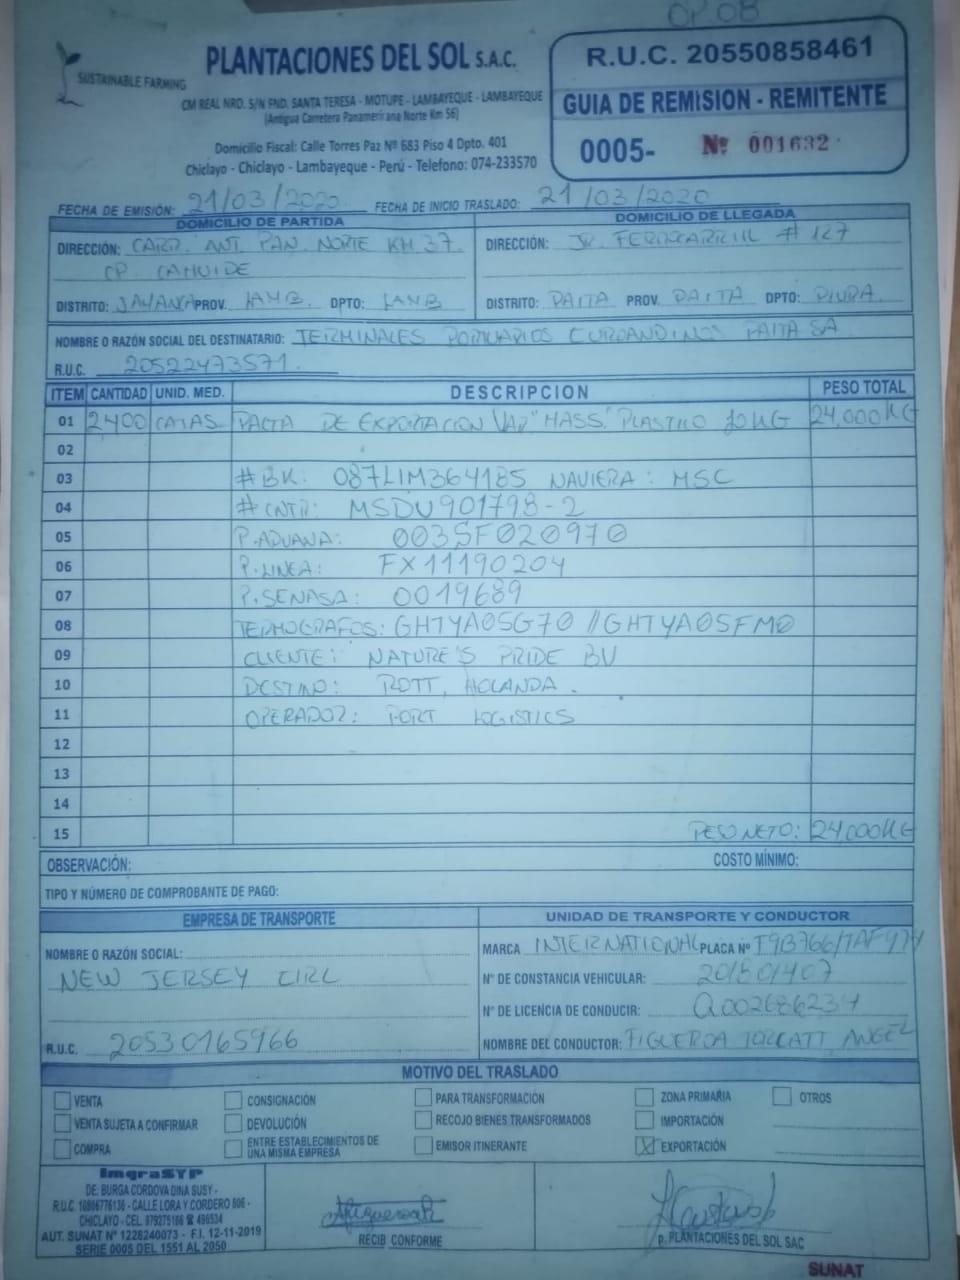 OP. 08
SUSTAINABLE FARMING
PLANTACIONES DEL SOL S.A.C.
CM REAL NRO. S/N FND. SANTA TERESA - MOTUPE - LAMBAYEQUE - LAMBAYEQUE
(Antigua Carretera Panamericana Norte Km 56)
Domicilio Fiscal: Calle Torres Paz Nº 683 Piso 4 Dpto. 401
Chiclayo - Chiclayo - Lambayeque - Perú - Telefono: 074-233570
R.U.C. 20550858461
GUIA DE REMISION - REMITENTE
0005- Nº 001632
FECHA DE EMISIÓN: 21/03/2020 FECHA DE INICIO TRASLADO: 21/03/2020
DOMICILIO DE PARTIDA
DIRECCIÓN: CARR. ANT. PAN. NORTE KM 37
CP. CAHUIDE
DISTRITO: JAYANCA PROV. LAMB. DPTO: LAMB
DOMICILIO DE LLEGADA
DIRECCIÓN: JR. FERROCARRIL # 127
DISTRITO: PAITA PROV. PAITA DPTO: PIURA.
NOMBRE O RAZÓN SOCIAL DEL DESTINATARIO: TERMINALES PORTUARIOS EUROANDINOS PAITA SA
R.U.C. 20522473571.
ITEM CANTIDAD UNID. MED. DESCRIPCION PESO TOTAL
01 2400 CAJAS PALTA DE EXPORTACION VAR "HASS" PLASTICO 10KG 24,000KG
02
03 #BK: 087LIM364185 NAVIERA: MSC
04 #CNTR: MSDU901798-2
05 P.ADUANA: 003SF020970
06 P.LINEA: FX11190204
07 P.SENASA: 0019689
08 TERMOGRAFOS: GHTYA05G70 //GHTYA05FM0
09 CLIENTE: NATURE'S PRIDE BV
10 DESTINO: ROTT, HOLANDA.
11 OPERADOR: PORT LOGISTICS
12
13
14
15 PESO NETO: 24,000KG
OBSERVACIÓN: COSTO MÍNIMO:
TIPO Y NÚMERO DE COMPROBANTE DE PAGO:
EMPRESA DE TRANSPORTE
NOMBRE O RAZÓN SOCIAL:
NEW JERSEY EIRL
R.U.C. 20530165966
UNIDAD DE TRANSPORTE Y CONDUCTOR
MARCA INTERNATIONAL PLACA Nº
Nº DE CONSTANCIA VEHICULAR:
Nº DE LICENCIA DE CONDUCIR:
NOMBRE DEL CONDUCTOR: FIGUEROA ANGEL
MOTIVO DEL TRASLADO
VENTA CONSIGNACIÓN PARA TRANSFORMACIÓN ZONA PRIMARIA OTROS
VENTA SUJETA A CONFIRMAR DEVOLUCIÓN RECOJO BIENES TRANSFORMADOS IMPORTACIÓN
COMPRA ENTRE ESTABLECIMIENTOS DE UNA MISMA EMPRESA EMISOR ITINERANTE X EXPORTACIÓN
ImgraSYP
DE. BURGA CORDOVA DINA SUSY -
R.U.C. 10806776136 - CALLE LORA Y CORDERO 606 -
CHICLAYO - CEL. 979275166 ☎ 496534
AUT. SUNAT Nº 1228240073 - F.I. 12-11-2019
SERIE 0005 DEL 1551 AL 2050
RECIB CONFORME
P. PLANTACIONES DEL SOL SAC
SUNAT